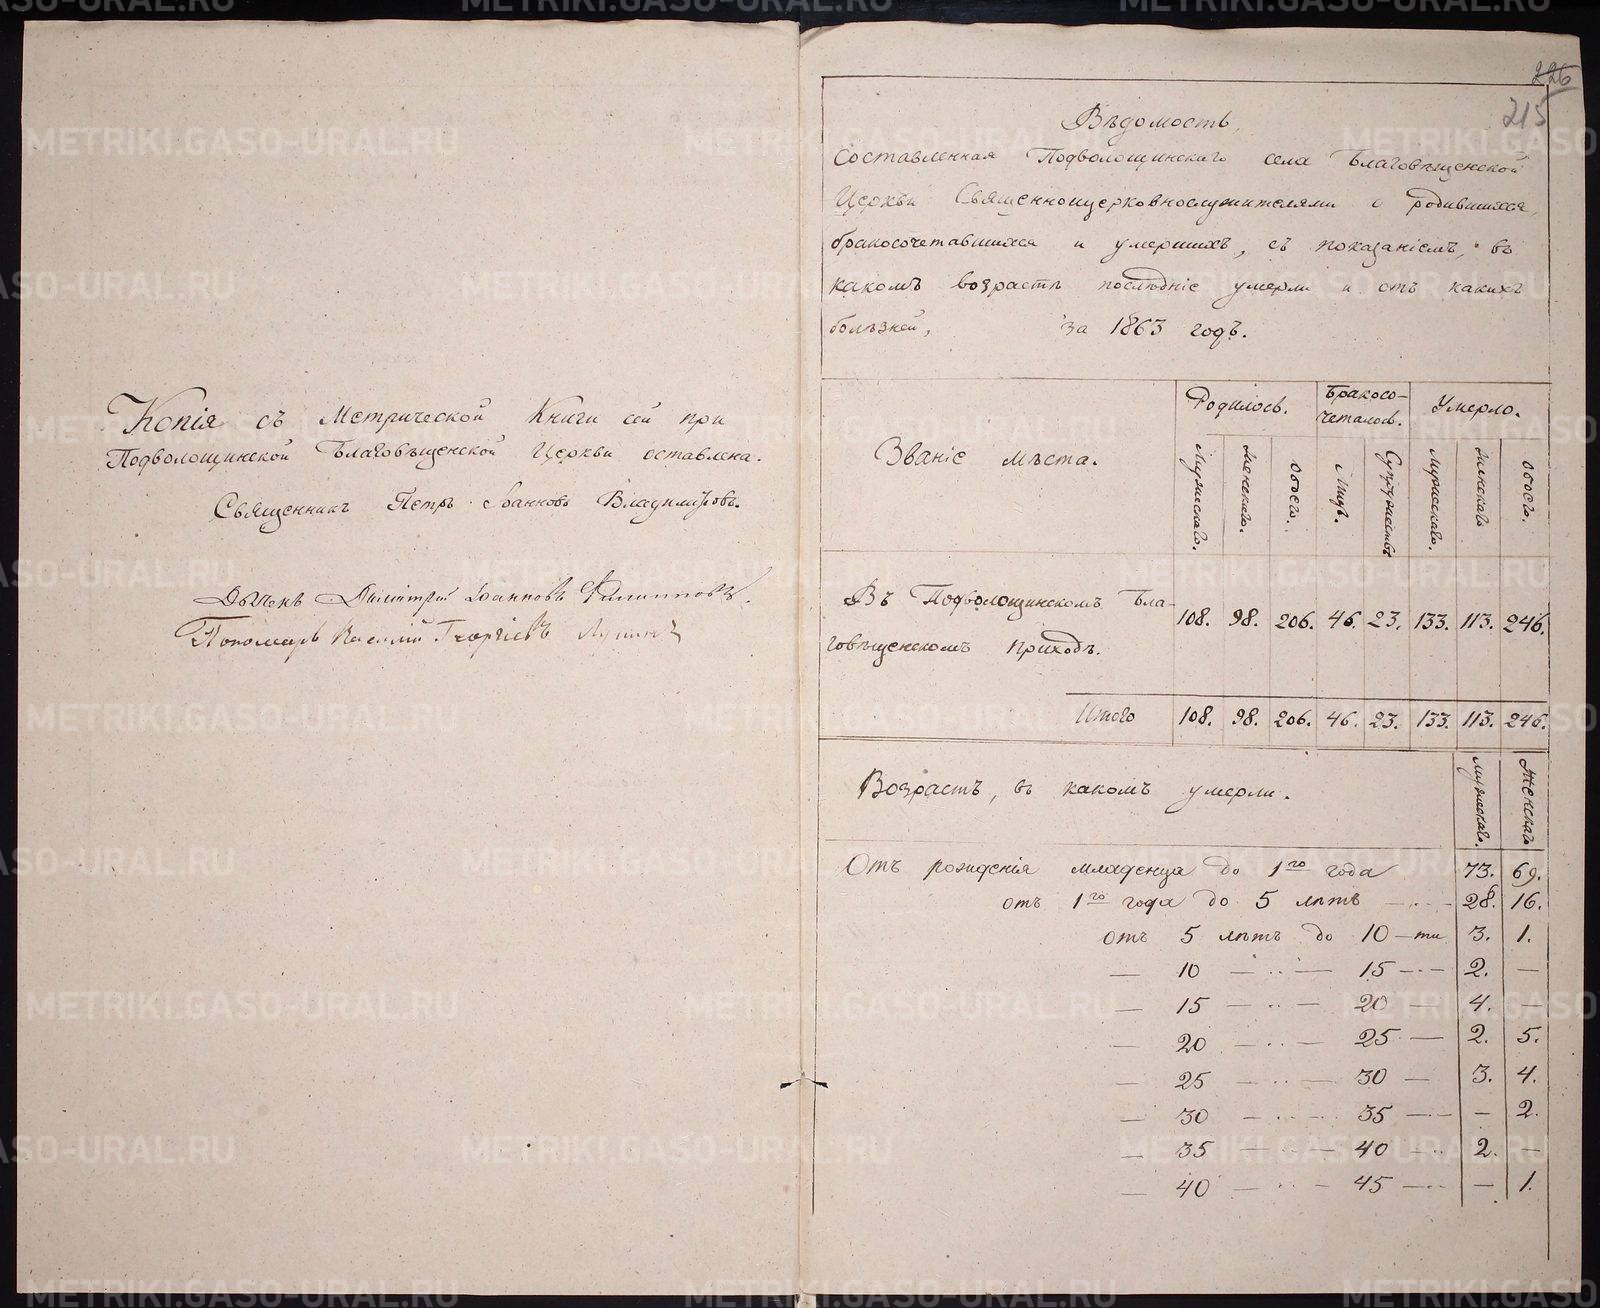 Копія съ Метрической Книги сей при
Подволощинской Благовѣщенской Церкви оставлена.
Священникъ Петръ Іоанновъ Владимировъ.
Дьячекъ Димитрій Іоанновъ Филипповъ.
Пономарь Василій Георгіевъ
226
215
Вѣдомость,
составленная Подволощинскаго села Благовѣщенской
Церкви Священноцерковнослужителями о родившихся,
бракосочетавшихся и умершихъ, съ показаніемъ, въ
какомъ возрастѣ послѣдніе умерли и отъ какихъ
болѣзней, за 1863 годъ.
Званіе мѣста. Родилось. Бракосо-
четалось. Умерло.
Мужескаго. Женскаго. Обоего. Лицъ. Супружествъ Мужескаго. Женскаго Обоего.
Въ Подволощинскомъ Бла-
говѣщенскомъ приходѣ. 108. 98. 206. 46. 23. 133. 113. 246.
Итого 108. 98. 206. 46. 23. 133. 113. 246.
Возрастъ, въ какомъ умерли. Мужескаго. Женскаго
Отъ рожденія младенца до 1го года 73. 69.
отъ 1го года до 5 лѣтъ — 28. 16.
отъ 5 лѣтъ до 10-ти 3. 1.
— 10 — 15 — 2. —
— 15 — 20 — 4. —
— 20 — 25 — 2. 5.
— 25 — 30 — 3. 4.
— 30 — 35 — — 2.
— 35 — 40 — 2. —
— 40 — 45 — — 1.
METRIKI.GASO-URAL.RU